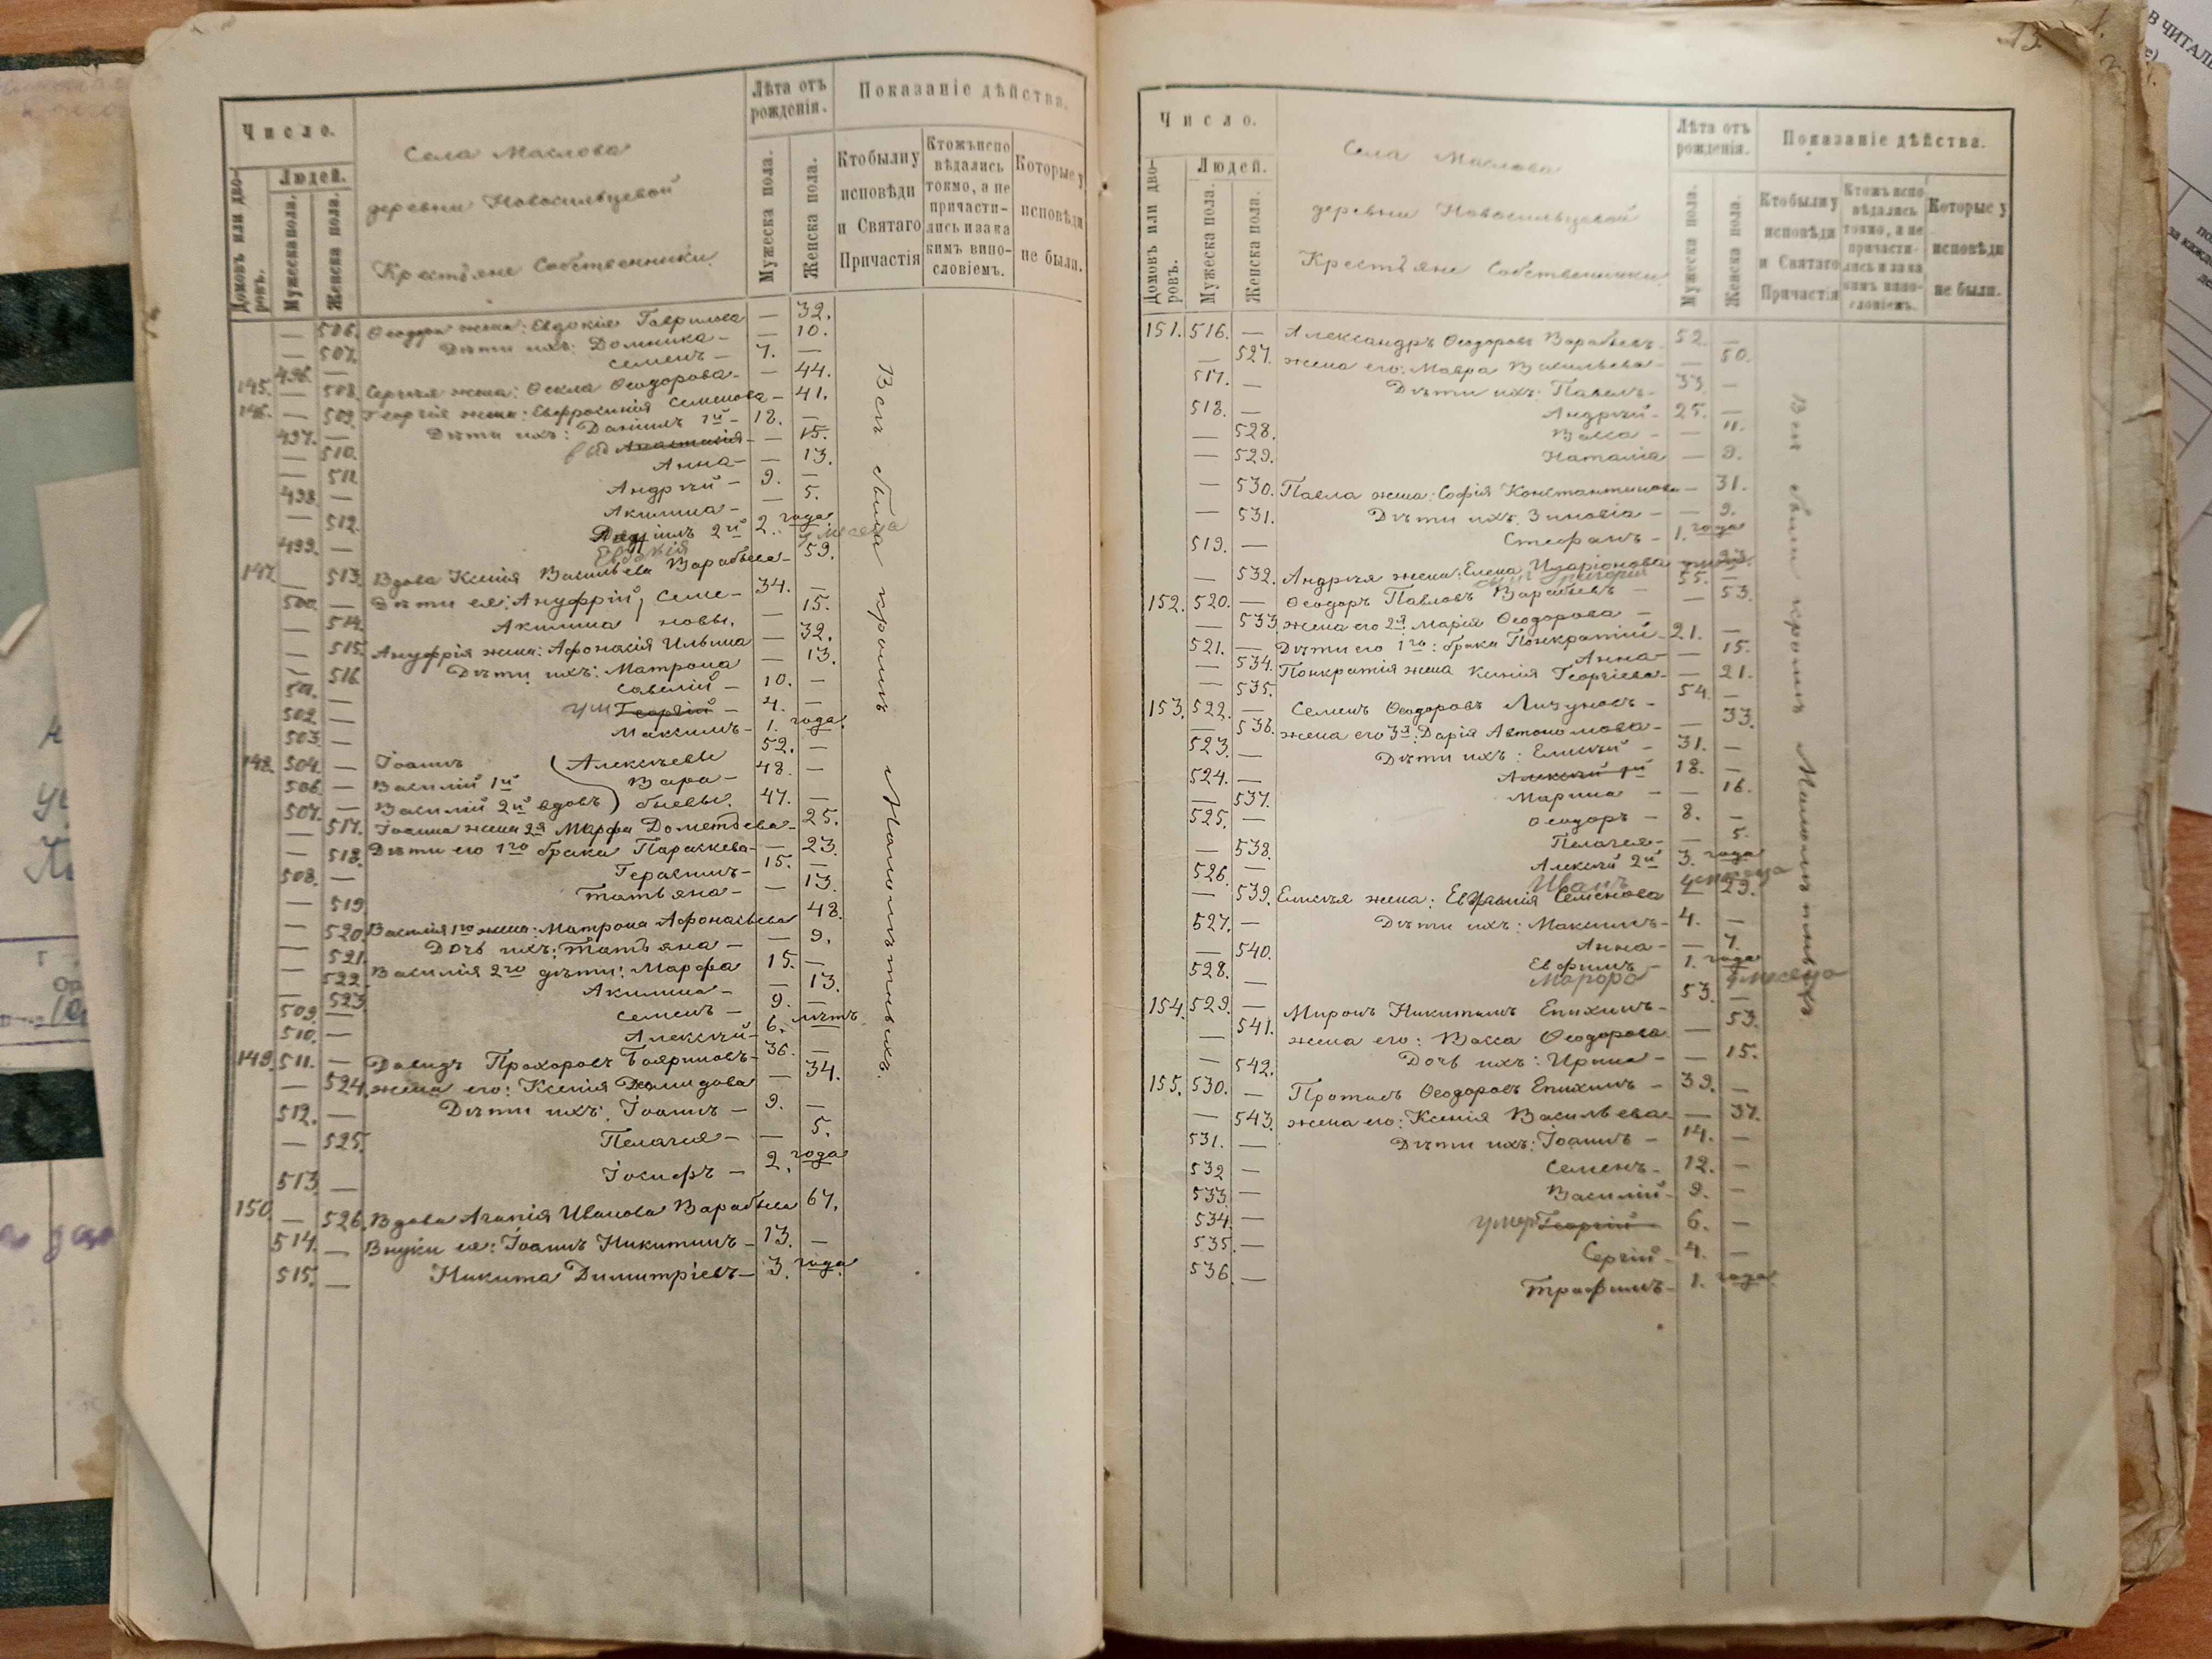 Число.
Домовъ или дворовъ.
Людей.
Мужеска пола.
Женска пола.
Села Маслова
деревни Новосильцевой
Крестьяне Собственники.
Лѣта отъ рожденія.
Мужеска пола.
Женска пола.
Показаніе дѣйства.
Кто были у исповѣди и Святаго Причастія
Кто жъ исповѣдались токмо, а не причастились и за каким винословіемъ.
Которые у исповѣди не были.
— 506. Ѳеодора жена: Евдокія Гаврилова — 32.
— 507. Дѣти ихъ: Домника — — 10.
496. — Семенъ — 7. —
145. — 508. Сергѣя жена: Ѳекла Ѳеодорова — — 44.
146. — 509. Георгія жена: Евфросинія Семенова — 41.
497. — Дѣти ихъ: Даніилъ 1й — 18. —
— 510. Анастасія — — 15.
— 511. Анна — — 13.
498. — Андрей — 9. —
— 512. Акилина — — 5.
499. — Даніилъ 2й 2. года
Евдокія
147. — 513. Вдова Ксенія Васильева Варабьева — 59.
500. — Дѣти ея: Ануфрій, Семе- 34. —
— 514. Акилина новы. — 15.
— 515. Ануфрія жена: Афонасія Ильина — 32.
— 516. Дѣти ихъ: Матрона — 13.
501. — Савелій — 10. —
502. — ум Георгій — 4. —
503. — Максимъ — 1. года.
148. 504. — Іоаннъ Алексѣевы 52. —
506. — Василій 1й Вара- 48. —
507. — Василій 2й вдовъ бьевы. 47. —
— 517. Іоанна жена 2я Марфа Дометьева — 25.
— 518. Дѣти его 1го брака Параскева — — 23.
508. — Герасимъ — 15. —
— 519. Татьяна — — 13.
— 520. Василія 1го жена: Матрона Афонасьева 48.
— 521. Дочь ихъ: Татьяна — — 9.
— 522. Василія 2го дѣти: Марфа 15. —
— 523. Акилина — — 13.
509. — Семенъ — 9. —
510. — Алексѣй — 6. лѣтъ
149. 511. — Давидъ Прохоровъ Бояриновъ — 36. —
— 524. жена его: Ксенія Демидова — 34.
512. — Дѣти ихъ: Іоаннъ — 9. —
— 525. Пелагея — — 5.
513. — Іосифъ — 2. года
150. — 526. Вдова Агапія Иванова Варабьева 67.
514. — Внуки ея: Іоаннъ Никитинъ — 13. —
515. — Никита Димитріевъ — 3. года.
Всѣ были кромѣ Малолѣтнихъ.
13.
Число.
Домовъ или дворовъ.
Людей.
Мужеска пола.
Женска пола.
Села Маслова
деревни Новосильцевой
Крестьяне Собственники.
Лѣта отъ рожденія.
Мужеска пола.
Женска пола.
Показаніе дѣйства.
Кто были у исповѣди и Святаго Причастія
Кто жъ исповѣдались токмо, а не причастились и за каким винословіемъ.
Которые у исповѣди не были.
151. 516. — Александръ Ѳеодоровъ Варабьевъ — 52. —
— 527. жена его: Мавра Васильева — — 50.
517. — Дѣти ихъ: Павелъ — 33. —
518. — Андрей — 25. —
— 528. Васса — — 11.
— 529. Наталія — 9.
— 530. Павла жена: Софія Константинова — 31.
— 531. Дѣти ихъ: Зиновія — — 9.
519. — Стефанъ — 1. года
— 532. Андрея жена: Елена Иларіонова
152. 520. — Ѳеодоръ Павловъ Варабьевъ — 55. —
— 533. жена его 2я Марія Ѳеодорова — — 53.
521. — Дѣти его 1го: брака Понкратій — 21. —
— 534. Анна — — 15.
— 535. Понкратія жена Ксенія Георгіева — — 21.
153. 522. — Семенъ Ѳеодоровъ Личуновъ — 54. —
— 536. жена его 3я: Дарія Автономова — — 33.
523. — Дѣти ихъ: Елисѣй — 31. —
524. — Алексѣй 1й 18. —
— 537. Марина — — 16.
525. — Ѳеодоръ — 8. —
— 538. Пелагея — — 5.
526. — Алексѣй 2й 3. года
Иванъ
— 539. Елисѣя жена: Евфимія Семенова — 29.
527. — Дѣти ихъ: Максимъ — 4. —
— 540. Анна — — 7.
528. — Евфимъ — 1. года
Марфа
154. 529. — Миронъ Никитинъ Епихинъ — 53. —
— 541. жена его: Васса Ѳеодорова — 53.
— 542. Дочь ихъ: Ирина — — 15.
155. 530. — Протасъ Ѳеодоровъ Епихинъ — 39. —
— 543. жена его: Ксенія Васильева — — 37.
531. — Дѣти ихъ: Іоаннъ — 14. —
532 — Семенъ — 12. —
533. — Василій — 9. —
534. — умер Георгій 6. —
535. — Сергій — 4. —
536. — Трофимъ — 1. года.
Всѣ были кромѣ Малолѣтнихъ.